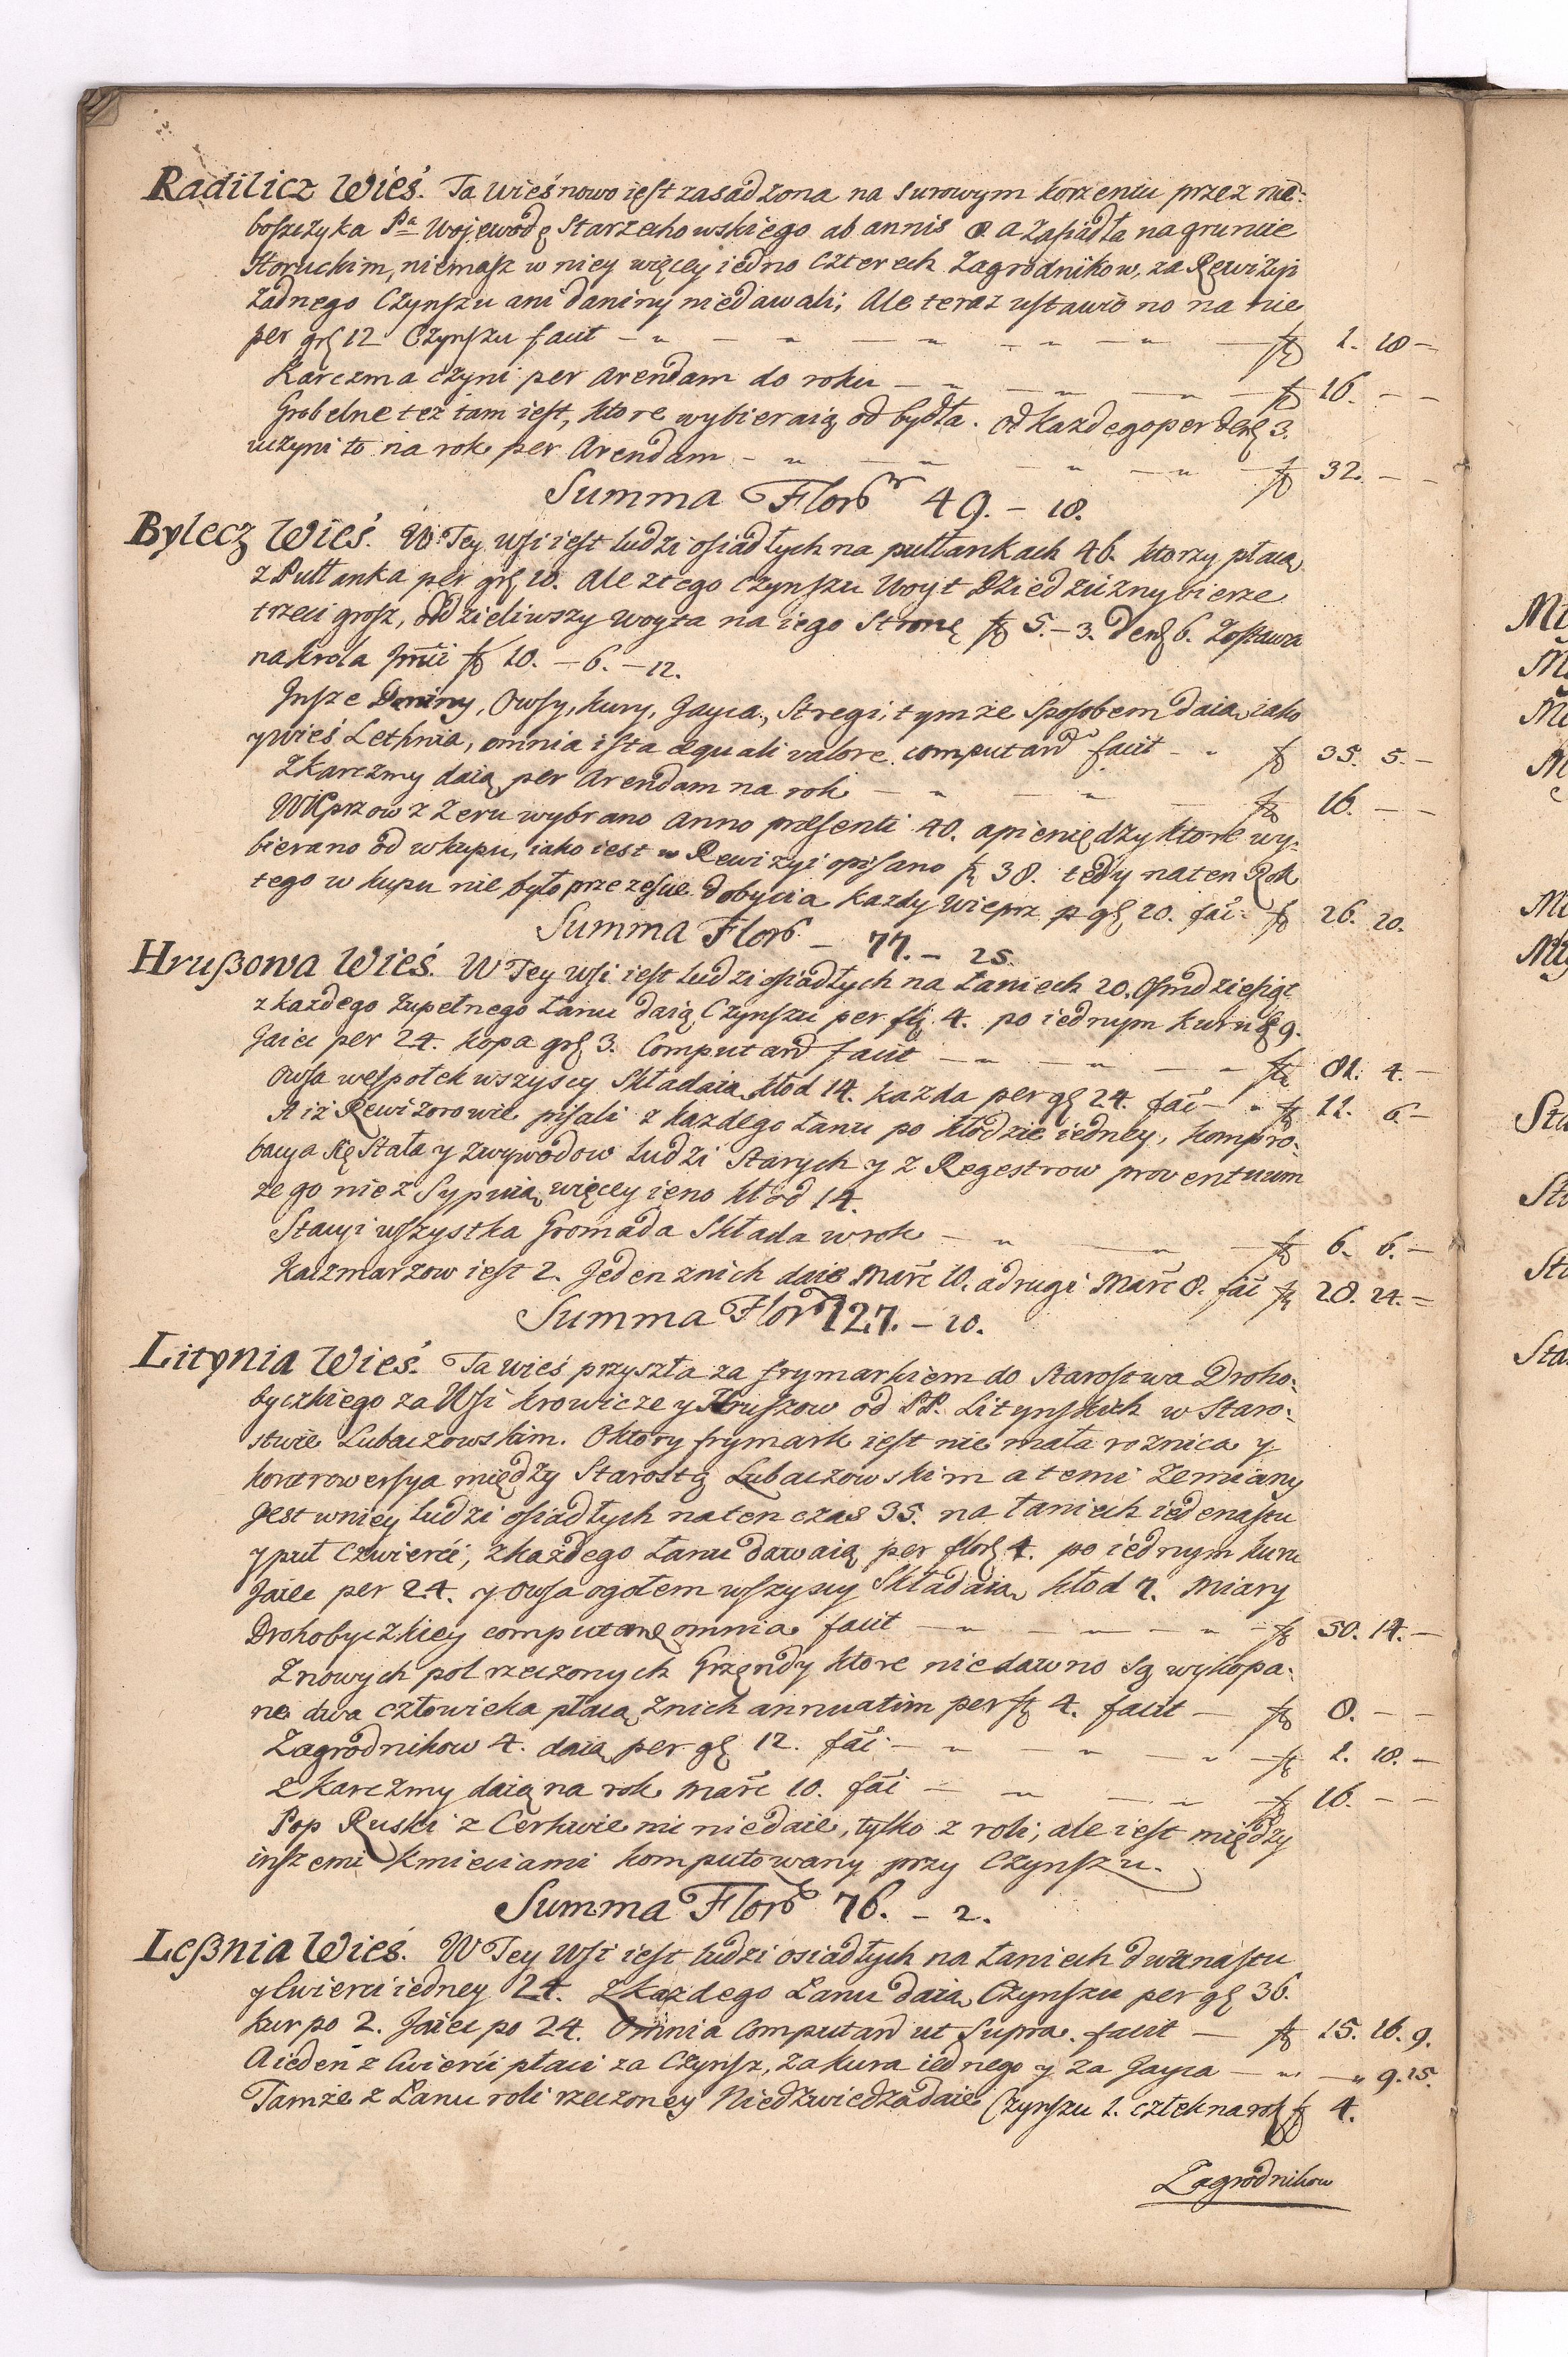 Radilicz Wieś. Ta wieś nowo iest zasadzona na surowym korzeniu przez nie:
boszczyka Pa Wojewodę Starzechowskiego ab annis 8. a zasiadła na gruncie
Horuckim, niemasz w niey więcey iedno czterech Zagrodnikow, za Rewizyi
żadnego Czynszu ani daniny niedawali; Ale teraz ustawio no na nie
per grſ 12 Czynszu facit – „ – „ – „ – „ – „ – fl 1. 18 –
Karczma czyni per Arendam do roku – „ – „ – „ – fl 16. – –
Grobelne też tam iest, ktore wybieraią od bydła. od każdego per denſ 3.
uczyni to na rok per Arendam – „ – „ – „ – „ – fl 32. – –
Summa Flor 49. – 18.
Bylecz Wieś. W Tey Wsi iest ludzi osiadłych na pułłankach 46. ktorzy płacą
z Pułłanka per grſ 10. Ale z tego Czynszu Woyt Dziedziczny bierze
trzeci grosz, oddzieliwszy woyta na iego Stronę fl 5. – 3. Denſ 6. Zostawa
na krola Jmci fl 10. – 6. – 12.
Insze Daniny, Owsy, kury, Jayca, Stregi, tymże sposobem daią iako
y wieś Lethnia, omnia ista æquali valore computand facit – „ fl 35. 5. –
Z karczmy daią per Arendam na rok – „ – „ – fl 16. – –
Wieprzow z Żeru wybrano Anno præsenti 40. a pieniędzy ktore wy:
bierano od wkupu, iako iest w Rewizyi opisano fl 38. tedy na ten Rok
tego wkupu nie było przezeście dobycia każdy Wieprz p gſ 20. fáci fl 26. 20.
Summa Flor – 77. – 25.
Hrußowa Wieś. W Tey Wsi iest ludzi osiadłych na Łaniech 20. Osmdziesiąt
z każdego zupełnego Łanu daią Czynszu per flſ 4. po iednym kuru gſ 9.
Jaiec per 24. kopa grſ 3. Computand facit – „ – „ – „ – fl 81. 4. –
Owsa wespołek wszyscy Składaią kłod 14. każda per gſ 24. fáci – „ fl 11. 6 –
A iż Rewizorowie pisali z każdego Łanu po kłodzie iedney, kompro:
bacya się Stała y z wywodow ludzi Starych y z Regestrow proventuum
że go nie z Sypuią więcey ieno kłod 14.
Stacyi wszystka Gromada Składa w rok – „ – „ – fl 6. 6. –
Kaczmarzow iest 2. Jeden z nich daie Marč 10. a drugi Marč 8. fáci fl 28. 24. –
Summa Flor 127. – 10.
Litynia Wieś. Ta wieś przyszła za frymarkiem do Starostwa Droho:
byczkiego za Wsi krowicze y Hruszow od PP. Lityńskich w Staro:
stwie Lubaczowskim. O ktory frymark iest nie mała roznica y
kontrowersya między Starostą Lubaczowskim a temi Zemiany
Jest w niey ludzi osiadłych na ten czas 35. na Łaniech iedenastu
y puł czwierci, z każdego Łanu dawaią per florſ 4. po iednym kuru
Jaiec per 24. y Owsa ogołem wszyscy Składaią kłod 7. Miary
Drohobyczkiey computand omnia facit – „ – „ – „ – fl 50. 14. –
Z nowych pol rzeczonych Grzendy ktore niedawno są wykopa:
ne dwa człowieka płacą z nich annuatim per fl 4. facit – fl 8. – –
Zagrodnikow 4. daią per gſ 12. fáci – „ – „ – „ – fl 1. 18. –
Z karczmy daią na rok Marč 10. fáci – „ – „ – fl 16. – –
Pop Ruski z Cerkwie nic niedaie, tylko z roli; ale iest między
inszemi kmieciami komputowany przy Czynszu.
Summa Flor 76. – 2.
Leßnia Wieś. W Tey Wsi iest ludzi osiadłych na Łaniech dwunastu
y Cwierci iedney 24. Z każdego Łanu daią Czynszu per gſ 36.
kur po 2. Jaiec po 24. Omnia Computand ut Supra. facit – fl 15. 16. 9.
A ieden z Cwierci płaci za Czynsz, za kura iednego y za Jayca – „ – „ 9. 15.
Tamże z Łanu roli rzeczoney Niedzwiedza daie Czynszu 1. człek na rok fl 4.
Zagrodnikow